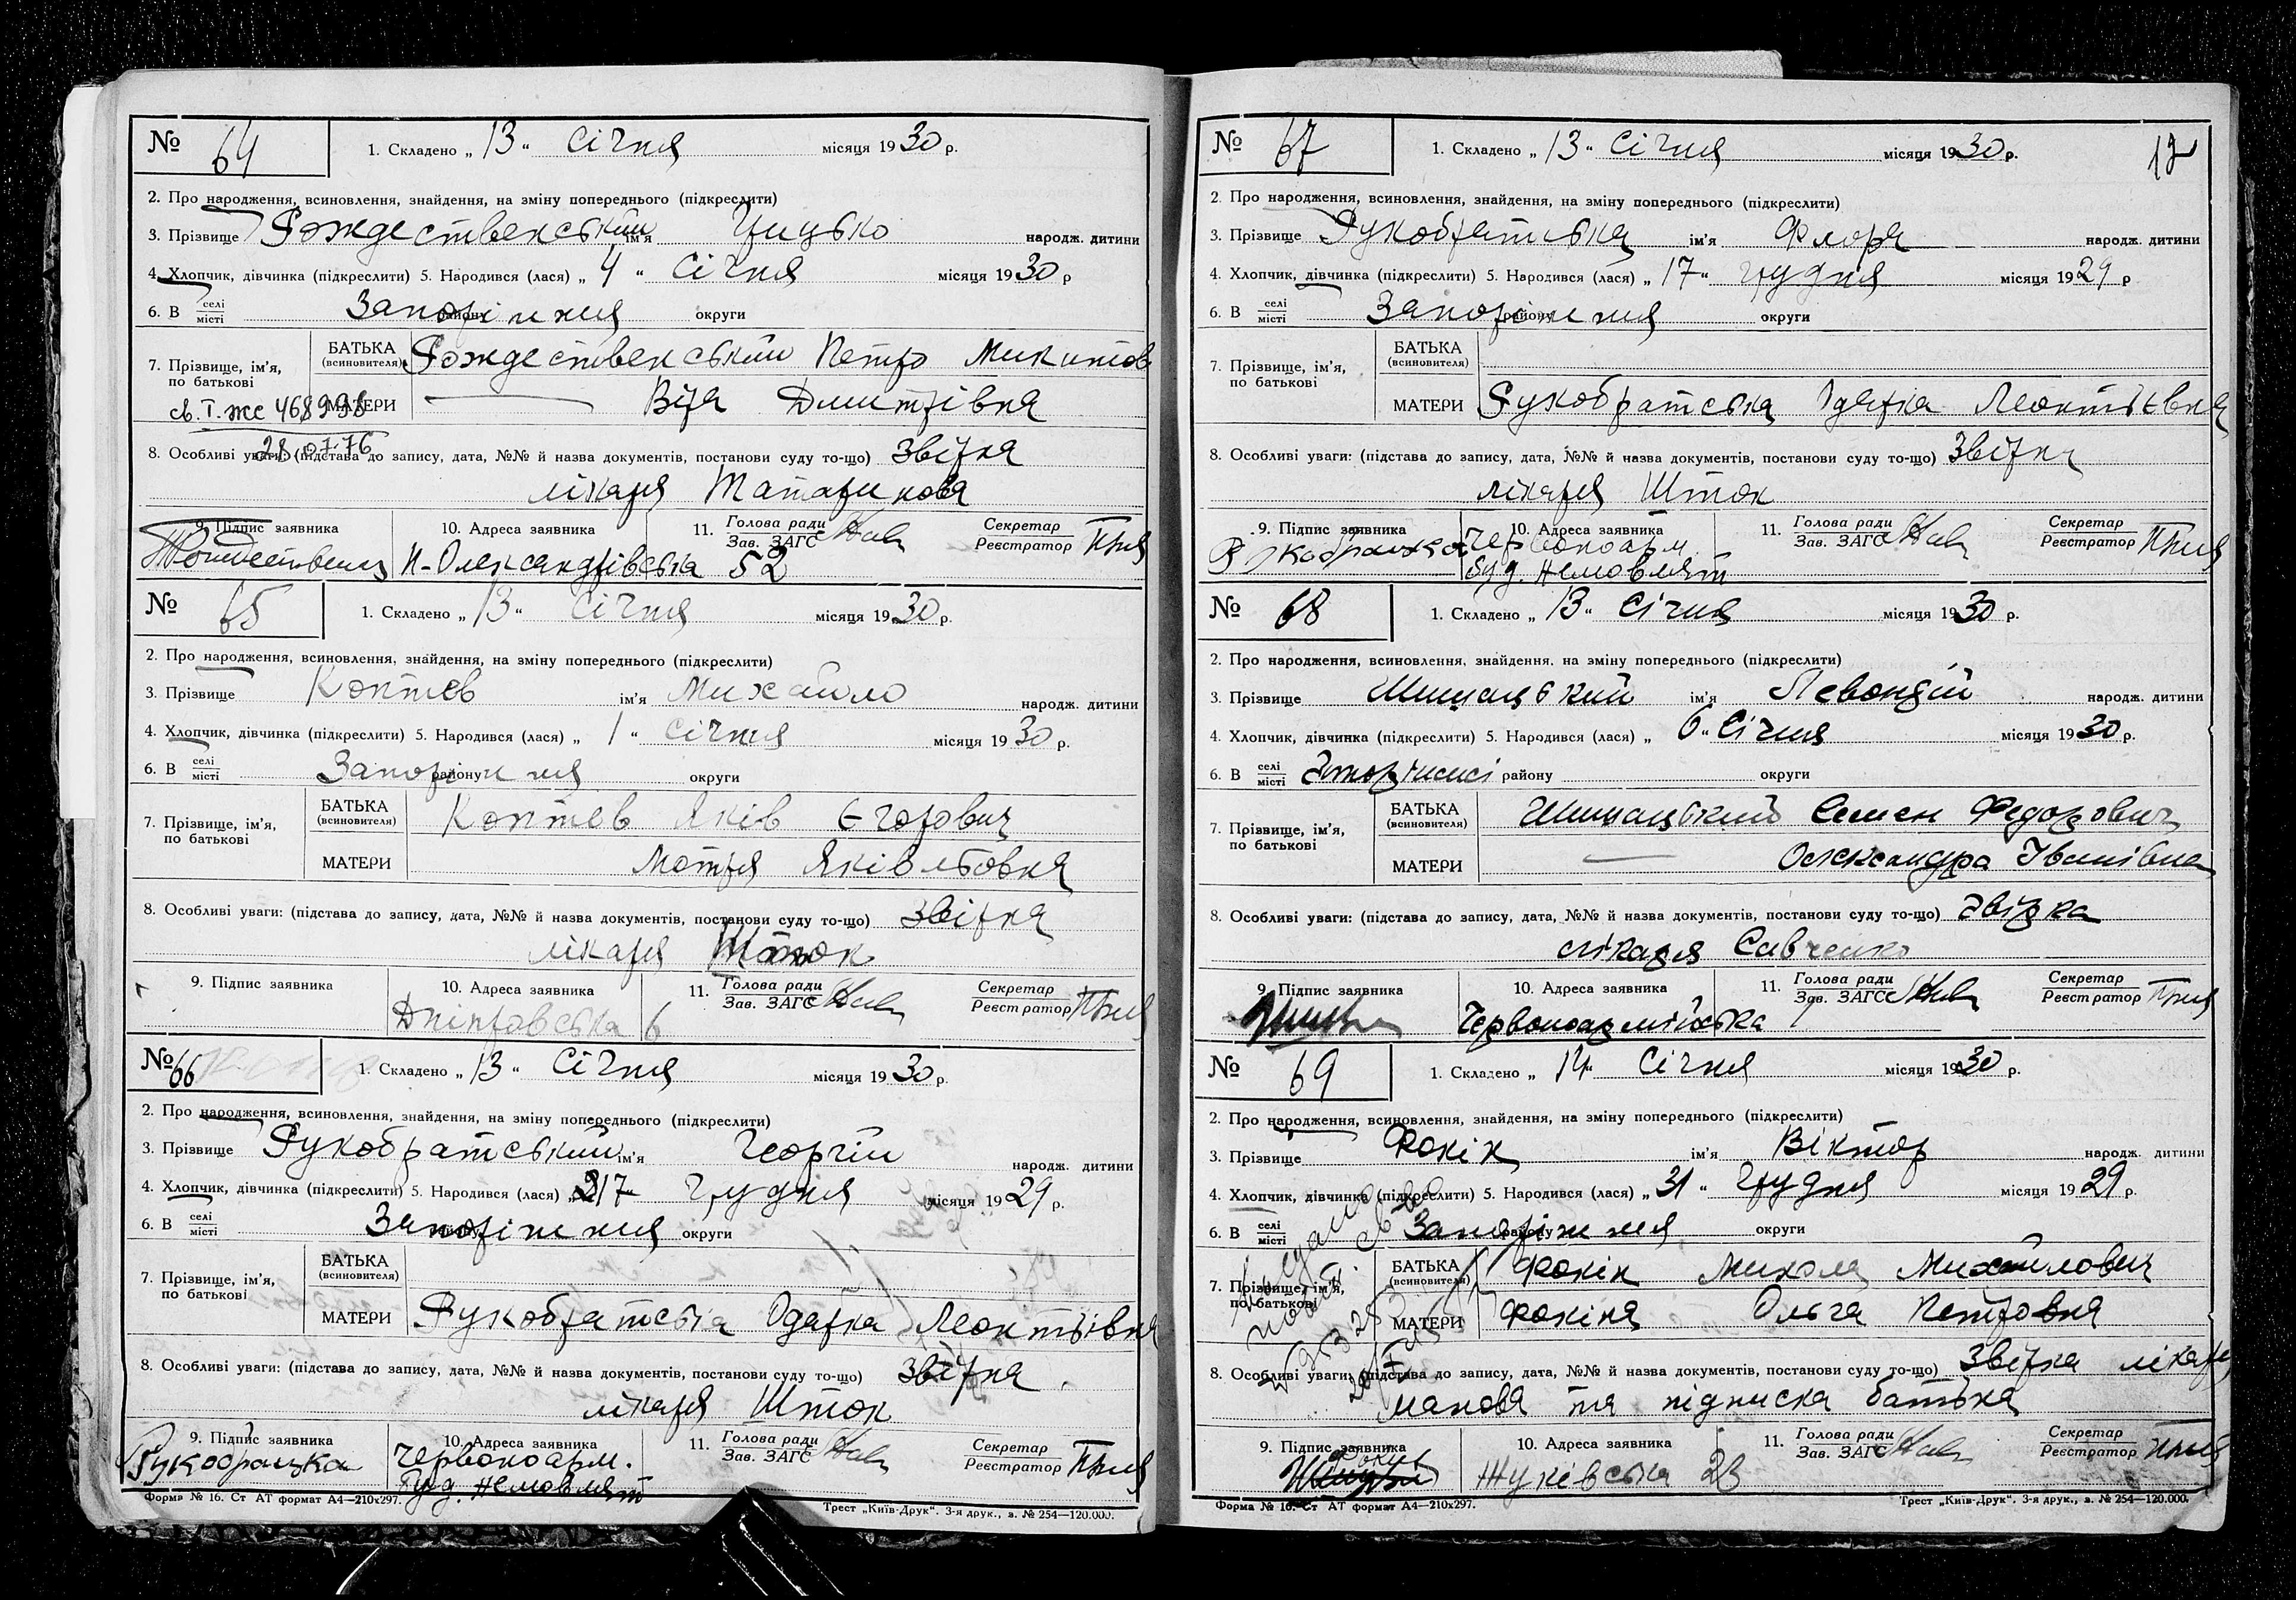 № 64 1. Складено „13“ Січня місяця 1930 р.
2. Про народження, всиновлення, знайдення, на зміну попереднього (підкреслити)
3. Прізвище Рождественський ім'я Грицько народж. дитини
4. Хлопчик, дівчинка (підкреслити) 5. Народився (лася) „4“ Січня місяця 1930 р
6. В селі місті Запоріжжя району округи
7. Прізвище, ім'я, по батькові БАТЬКА (всиновителя) Рождественський Петро Микитов
МАТЕРИ — Віра Дмитрівна
св. І. жс 468998
28.07.76
8. Особливі уваги: (підстава до запису, дата, №№ й назва документів, постанови суду то-що) Звірка
лікаря Татаринова
9. Підпис заявника 10. Адреса заявника 11. Голова ради Зав. ЗАГС Секретар Реєстратор
Н-Олександрівська 52
№ 65 1. Складено „13“ Січня місяця 1930 р.
2. Про народження, всиновлення, знайдення, на зміну попереднього (підкреслити)
3. Прізвище Коптев ім'я Михайло народж. дитини
4. Хлопчик, дівчинка (підкреслити) 5. Народився (лася) „1“ Січня місяця 1930 р.
6. В селі місті Запоріжжя району округи
7. Прізвище, ім'я, по батькові БАТЬКА (всиновителя) Коптев Яків Єгорович
МАТЕРИ Мотря Яківльовна
8. Особливі уваги: (підстава до запису, дата, №№ й назва документів, постанови суду то-що) Звірка
лікаря Шток
9. Підпис заявника 10. Адреса заявника 11. Голова ради Зав. ЗАГС Секретар Реєстратор
Дніпровська 6
№ 66 1. Складено „13“ Січня місяця 1930 р.
2. Про народження, всиновлення, знайдення, на зміну попереднього (підкреслити)
3. Прізвище Рукобратський ім'я Георгій народж. дитини
4. Хлопчик, дівчинка (підкреслити) 5. Народився (лася) „17 грудня місяця 1929 р.
6. В селі місті Запоріжжя району округи
7. Прізвище, ім'я, по батькові БАТЬКА (всиновителя)
МАТЕРИ Рукобратська Одарка Леонтьівна
8. Особливі уваги: (підстава до запису, дата, №№ й назва документів, постанови суду то-що) Звірка
лікаря Шток
9. Підпис заявника 10. Адреса заявника 11. Голова ради Зав. ЗАГС Секретар Реєстратор
Рукобрацка Червоноарм.
буд. Немовлят
Форма № 16. Ст АТ формат А4—210х297. Трест „Київ-Друк“. 3-я друк., з. № 254—120.000.
№ 67 1. Складено „13“ Січня місяця 1930 р. 12
2. Про народження, всиновлення, знайдення, на зміну попереднього (підкреслити)
3. Прізвище Рукобратська ім'я Флора народж. дитини
4. Хлопчик, дівчинка (підкреслити) 5. Народився (лася) „17“ грудня місяця 1929 р
6. В селі місті Запоріжжя району округи
7. Прізвище, ім'я, по батькові БАТЬКА (всиновителя)
МАТЕРИ Рукобратська Одарка Леонтьєвна
8. Особливі уваги: (підстава до запису, дата, №№ й назва документів, постанови суду то-що) Звірка
лікаря Шток
9. Підпис заявника 10. Адреса заявника 11. Голова ради Зав. ЗАГС Секретар Реєстратор
Червоноарм.
буд. Немовлят
№ 68 1. Складено „13“ Січня місяця 1930 р.
2. Про народження, всиновлення, знайдення, на зміну попереднього (підкреслити)
3. Прізвище Шишацький ім'я Левондій народж. дитини
4. Хлопчик, дівчинка (підкреслити) 5. Народився (лася) „6“ Січня місяця 1930 р.
6. В селі місті району округи
7. Прізвище, ім'я, по батькові БАТЬКА (всиновителя) Шишацький Семен Федорович
МАТЕРИ — Олександра Іванівна
8. Особливі уваги: (підстава до запису, дата, №№ й назва документів, постанови суду то-що) Звірка
лікаря Савченко
9. Підпис заявника 10. Адреса заявника 11. Голова ради Зав. ЗАГС Секретар Реєстратор
Червоноармійська 7
№ 69 1. Складено „14“ Січня місяця 1930 р.
2. Про народження, всиновлення, знайдення, на зміну попереднього (підкреслити)
3. Прізвище Фокін ім'я Віктор народж. дитини
4. Хлопчик, дівчинка (підкреслити) 5. Народився (лася) „31“ грудня місяця 1929 р.
6. В селі місті Запоріжжя району округи
7. Прізвище, ім'я, по батькові БАТЬКА (всиновителя) Фокін Микола Михайлович
МАТЕРИ Фокіна Ольга Петровна
8. Особливі уваги: (підстава до запису, дата, №№ й назва документів, постанови суду то-що) Звірка лікаря
та підписка батька
9. Підпис заявника 10. Адреса заявника 11. Голова ради Зав. ЗАГС Секретар Реєстратор
Жуківська 23
Форма № 16. Ст АТ формат А4—210х297. Трест „Київ-Друк“. 3-я друк., з. № 254—120.000.